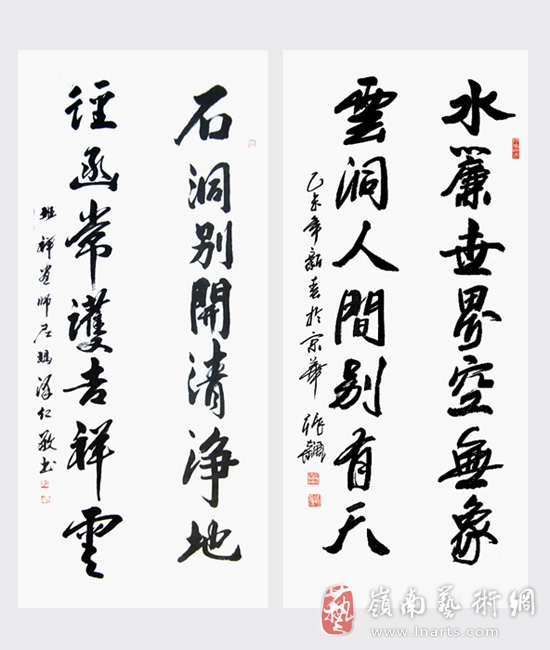 水簾世界空無象
雲洞人間别有天
乙未年新春於京華
石洞别開清淨地
經函常護吉祥雲
班禪畫師尼瑪澤仁敬书
藝
嶺南藝術網
www.lnarts.com